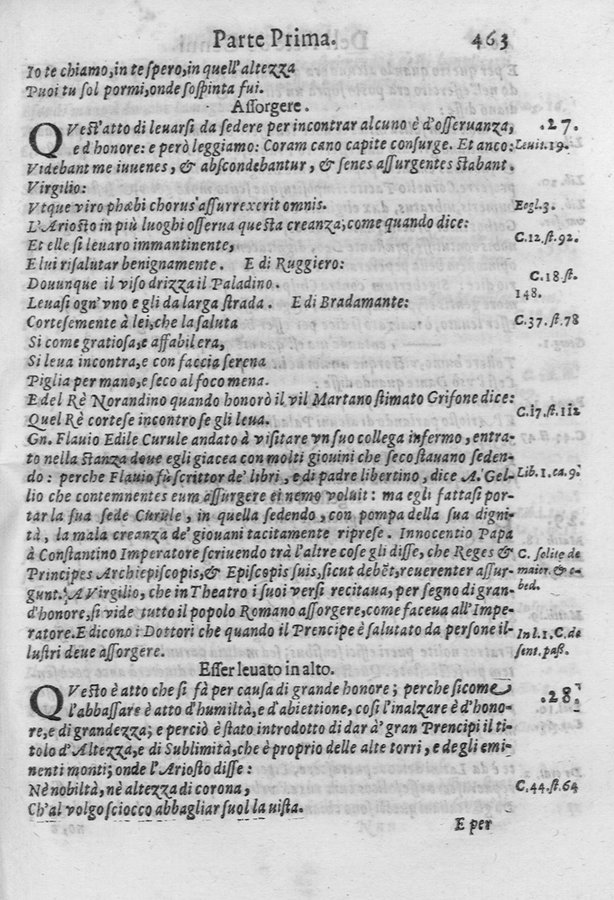 Parte Prima. 463
Io te chiamo, in te spero, in quell'altezza
Puoi tu sol pormi, onde sospinta fui.
Assorgere.
QVest'atto di leuarsi da sedere per incontrar alcuno è d'osseruanza, .27.
e d'honore: e però leggiamo: Coram cano capite consurge. Et anco: Leuit. 19.
Videbant me iuuenes, & abscondebantur, & senes assurgentes stabant.
Virgilio:
Vtque viro phœbi chorus assurrexerit omnis. Eogl. 3.
L'Ariosto in più luoghi osserua questa creanza; come quando dice:
Et elle si leuaro immantinente, C. 12. st. 92.
E lui risalutar benignamente. E di Ruggiero:
Douunque il viso drizza il Paladino. C. 18. st.
Leuasi ogn'vno e gli da larga strada. E di Bradamante: 148.
Cortesemente à lei, che la saluta C. 37. st. 78
Si come gratiosa, e affabil era,
Si leua incontra, e con faccia serena
Piglia per mano, e seco al foco mena.
E del Rè Norandino quando honorò il vil Martano stimato Grifone dice:
Quel Rè cortese incontro se gli leua. C. 17. st. 112
Gn. Flauio Edile Curule andato à visitare vn suo collega infermo, entra-
to nella stanza doue egli giacea con molti giouini che seco stauano seden-
do: perche Flauio fù scrittor de' libri, e di padre libertino, dice A. Gel- Lib. 1. ca. 9.
lio che contemnentes eum assurgere ei nemo voluit: ma egli fattasi por-
tar la sua sede Curule, in quella sedendo, con pompa della sua digni-
tà, la mala creanza de' giouani tacitamente riprese. Innocentio Papa
à Constantino Imperatore scriuendo trà l'altre cose gli disse, che Reges & C. solite de
Principes Archiepiscopis, & Episcopis suis, sicut debēt, reuerenter assur- maior. & o-
gunt. A Virgilio, che in Theatro i suoi versi recitaua, per segno di gran- bed.
d'honore, si vide tutto il popolo Romano assorgere, come faceua all'Impe-
ratore. E dicono i Dottori che quando il Prencipe è salutato da persone il- In l. 1. C. de
lustri deue assorgere. sent. pass.
Esser leuato in alto.
QVesto è atto che si fà per causa di grande honore; perche sicome .28.
l'abbassare è atto d'humiltà, e d'abiettione, così l'inalzare è d'hono-
re, e di grandezza; e perciò è stato introdotto di dar à' gran Prencipi il ti-
tolo d'Altezza, e di Sublimità, che è proprio delle alte torri, e degli emi-
nenti monti; onde l'Ariosto disse:
Nè nobiltà, nè altezza di corona, C. 44. st. 64
Ch'al volgo sciocco abbagliar suol la uista.
E per